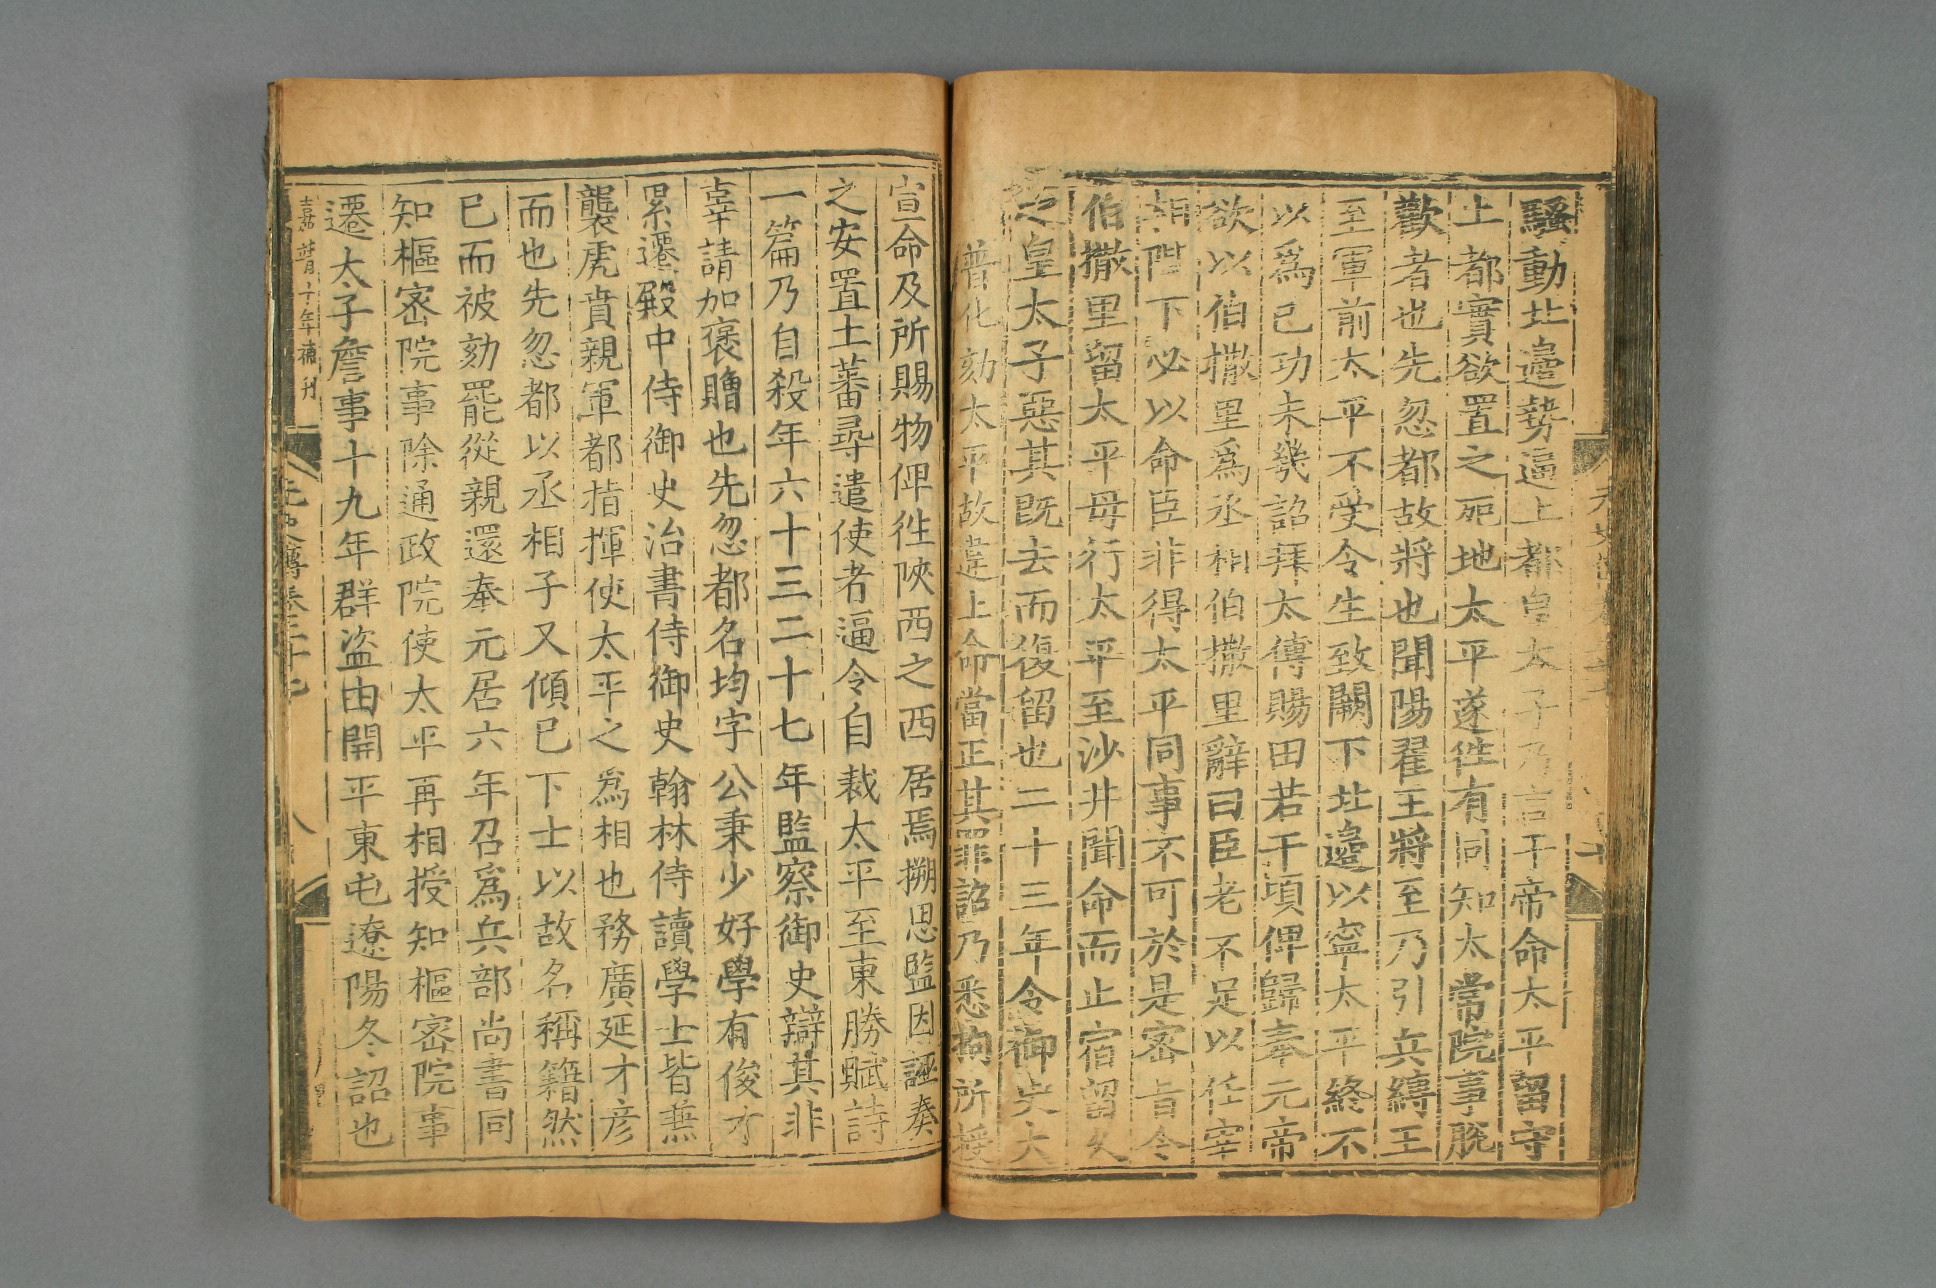 騷動北邊勢逼上都皇太子乃言于帝命太平留守
上都實欲置之死地太平遂徃有同知太常院事脫
歡者也先忽都故將也聞陽翟王將至乃引兵縛王
至軍前太平不受令生致闕下北邊以寧太平終不
以爲已功未幾詔拜太傅賜田若干頃俾歸奉元帝
欲以伯撒里爲丞相伯撒里辭曰臣老不足以任宰
相陛下必以命臣非得太平同事不可於是密旨令
伯撒里留太平毋行太平至沙井聞命而止宿留久
之皇太子惡其既去而復留也二十三年令御史大
普化劾太平故違上命當正其罪詔乃悉拘所授
宣命及所賜物俾徃陝西之西居焉搠思監因誣奏
之安置土蕃尋遣使者逼令自裁太平至東勝賦詩
一篇乃自殺年六十三二十七年監察御史辯其非
辜請加褒贈也先忽都名均字公秉少好學有俊才
累遷殿中侍御史治書侍御史翰林侍讀學士皆兼
襲虎賁親軍都指揮使太平之爲相也務廣延才彦
而也先忽都以丞相子又傾已下士以故名稱籍然
已而被劾罷從親還奉元居六年召爲兵部尚書同
知樞密院事除通政院使太平再相授知樞密院事
遷太子詹事十九年群盗由開平東屯遼陽冬詔也
嘉靖十年補刊
元史傳卷二十七
八